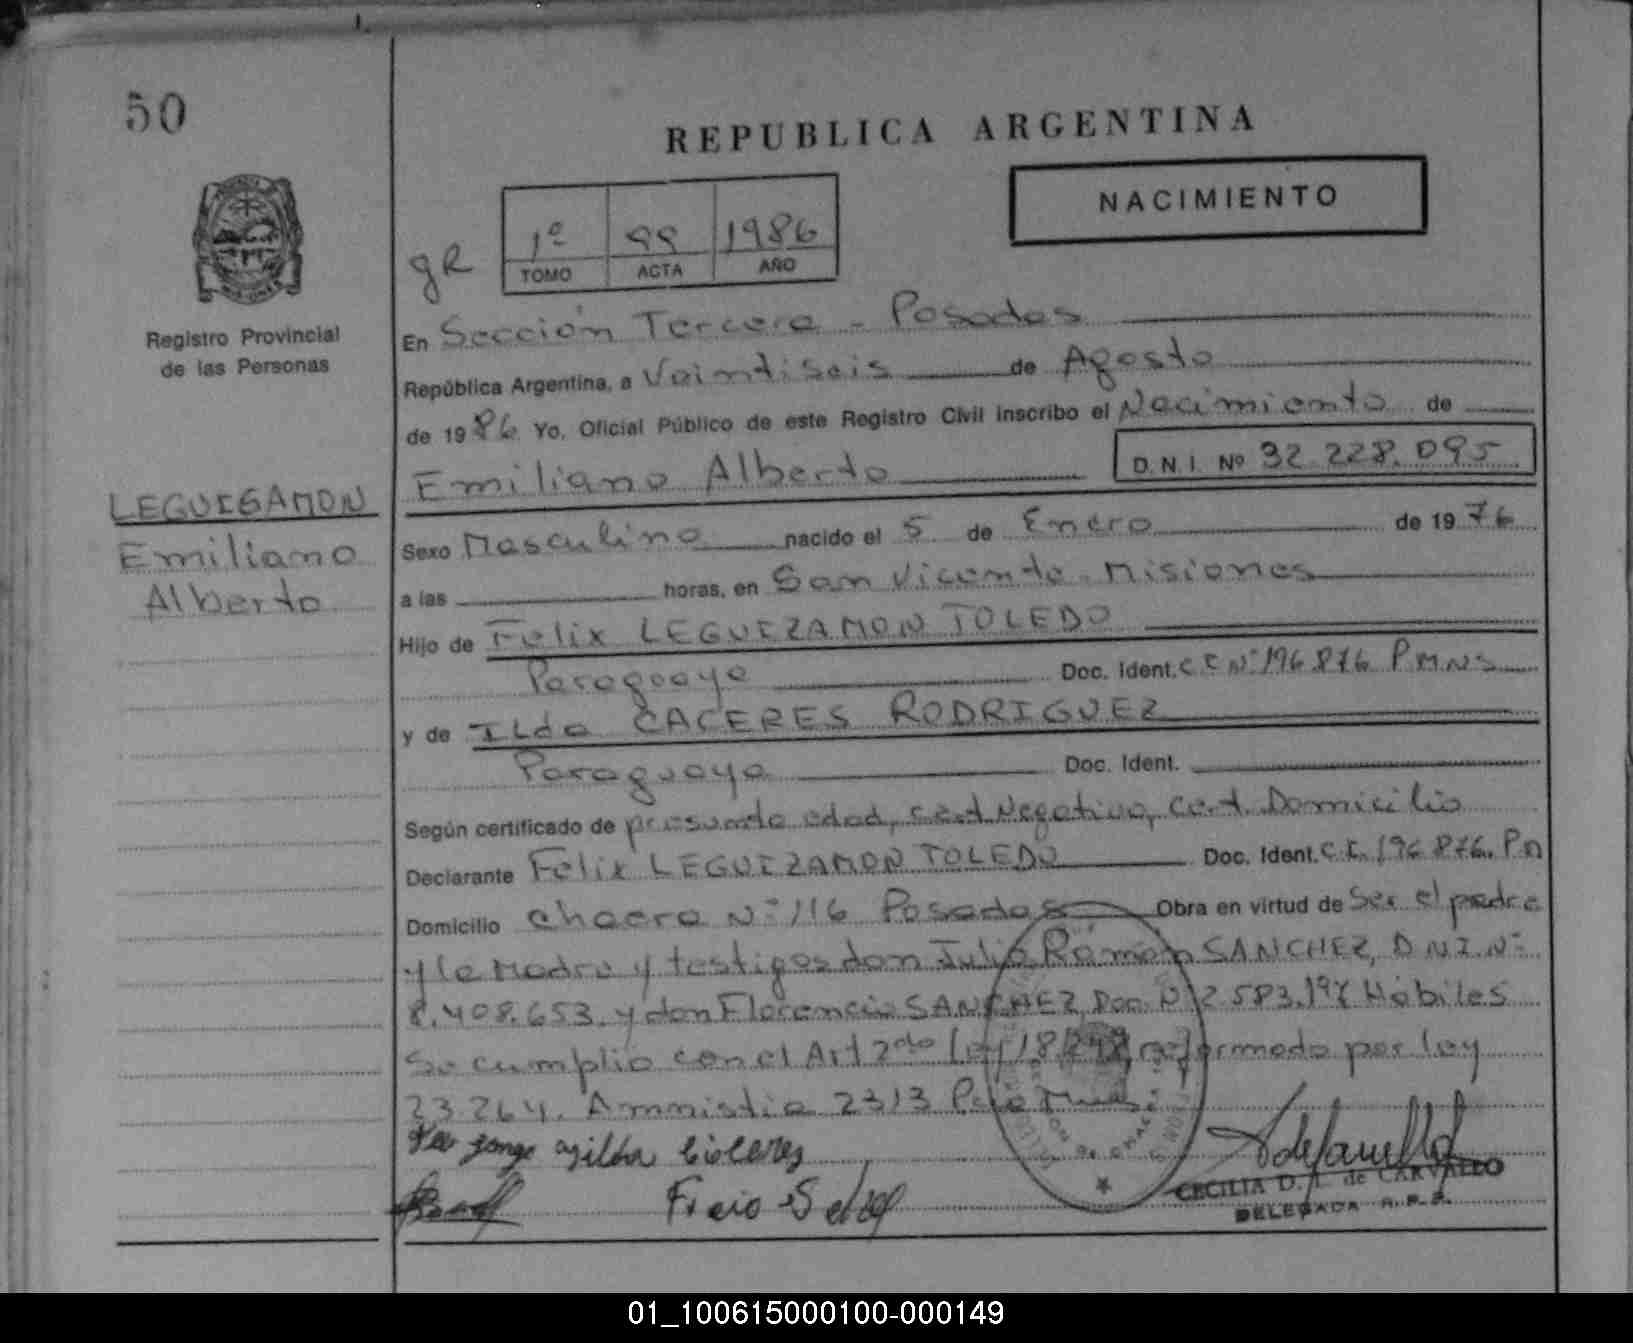 50
REPUBLICA ARGENTINA
NACIMIENTO
gR
1º 99 1986
TOMO ACTA AÑO
Registro Provincial
de las Personas
En Sección Tercera - Posadas
República Argentina, a Veintiseis de Agosto
de 1986 Yo, Oficial Público de este Registro Civil inscribo el Nacimiento de
Emiliano Alberto D.N.I. Nº 32.228.095
LEGUIGAMON
Emiliano
Alberto
Sexo Masculino nacido el 5 de Enero de 1976
a las horas, en San Vicente - Misiones
Hijo de Felix LEGUIZAMON TOLEDO
Paraguaya Doc. Ident. C I Nº 196.876 P M N S
y de Ilda CACERES RODRIGUEZ
Paraguaya Doc. Ident.
Según certificado de presunta edad, cert Negativa, cert. Domicilio
Declarante Felix LEGUIZAMON TOLEDO Doc. Ident. C.I. 196 876. P.M
Domicilio chacra Nº 116 Posadas Obra en virtud de Ser el padre
y la Madre y testigos don Julio Ramon SANCHEZ, D N I. Nº
8.408.653. y don Florencio SANCHEZ, Doc. Nº 2.583.197 Hábiles
Se cumplio con el Art 2do ley 18.248 reformado por ley
23.264. Amnistia 2313
CECILIA D. L. de CARVALLO
DELEGADA R.P.P.
01_100615000100-000149